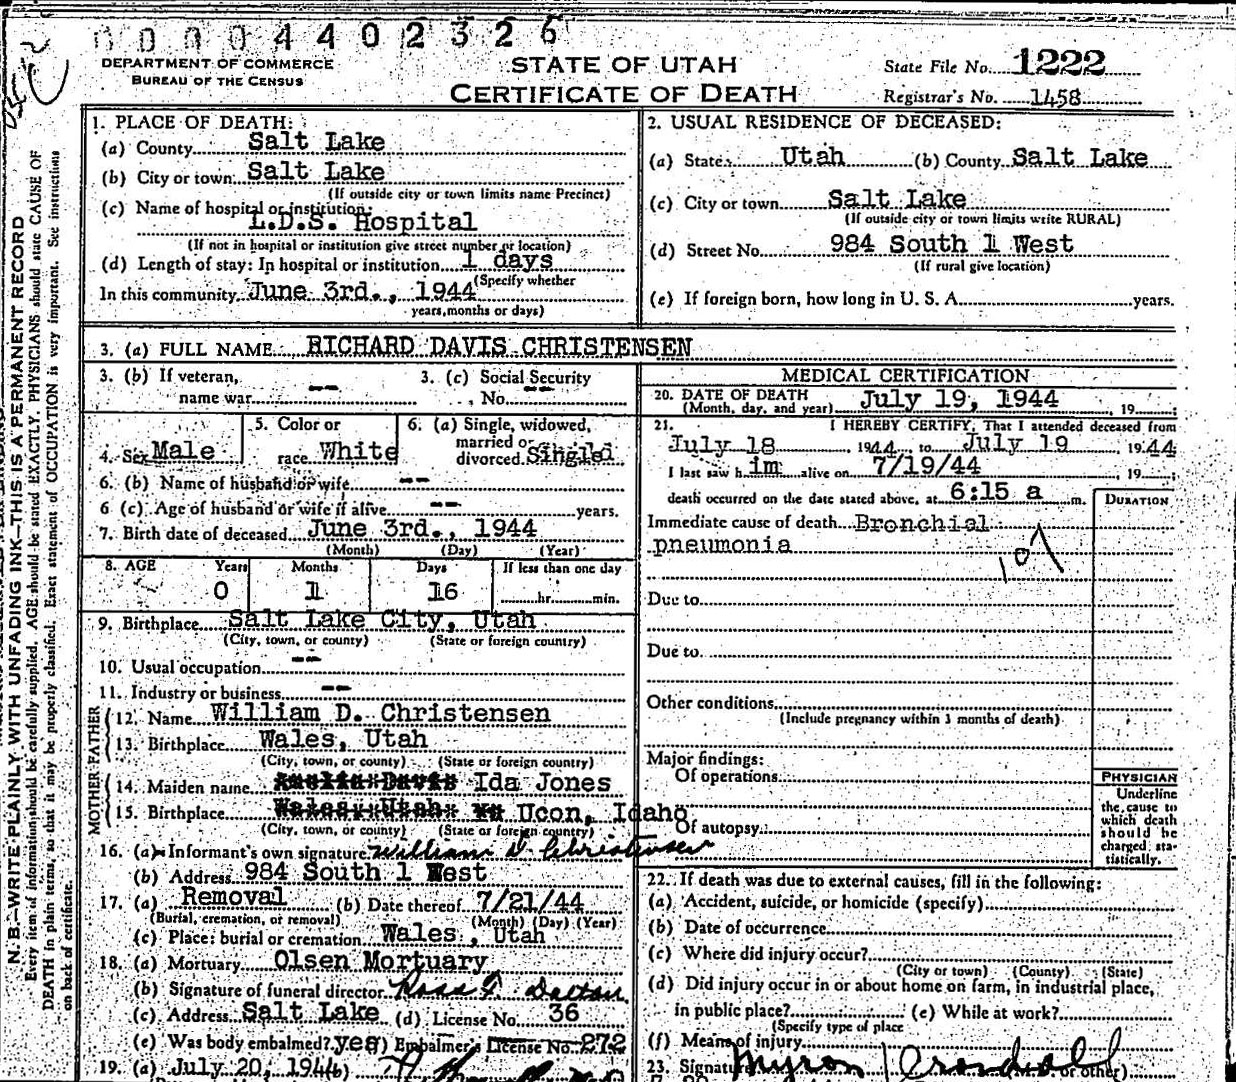 00004402326
DEPARTMENT OF COMMERCE
BUREAU OF THE CENSUS
STATE OF UTAH
CERTIFICATE OF DEATH
State File No. 1222
Registrar's No. 1458
N. B.—WRITE PLAINLY WITH UNFADING INK—THIS IS A PERMANENT RECORD
Every item of information should be carefully supplied. AGE should be stated EXACTLY. PHYSICIANS should state CAUSE OF
DEATH in plain terms, so that it may be properly classified. Exact statement of OCCUPATION is very important. See instructions
on back of certificate.
1. PLACE OF DEATH:
(a) County Salt Lake
(b) City or town Salt Lake
(If outside city or town limits name Precinct)
(c) Name of hospital or institution:
L.D.S. Hospital
(If not in hospital or institution give street number or location)
(d) Length of stay: In hospital or institution 1 days
(Specify whether
In this community June 3rd., 1944
years, months or days)
2. USUAL RESIDENCE OF DECEASED:
(a) State Utah (b) County Salt Lake
(c) City or town Salt Lake
(If outside city or town limits write RURAL)
(d) Street No. 984 South 1 West
(If rural give location)
(e) If foreign born, how long in U. S. A. years.
3. (a) FULL NAME RICHARD DAVIS CHRISTENSEN
3. (b) If veteran, name war --
3. (c) Social Security No. --
4. Sex Male
5. Color or race White
6. (a) Single, widowed, married or divorced Singled
6. (b) Name of husband or wife --
6 (c). Age of husband or wife if alive -- years.
7. Birth date of deceased June 3rd., 1944
(Month) (Day) (Year)
8. AGE Years Months Days If less than one day
0 1 16 hr. min.
9. Birthplace Salt Lake City, Utah
(City, town, or county) (State or foreign country)
10. Usual occupation --
11. Industry or business --
FATHER
12. Name William D. Christensen
13. Birthplace Wales, Utah
(City, town, or county) (State or foreign country)
MOTHER
14. Maiden name Ida Jones
15. Birthplace Wales, Utah Ucon, Idaho
(City, town, or county) (State or foreign country)
16. (a) Informant's own signature William D. Christensen
(b) Address 984 South 1 West
17. (a) Removal (b) Date thereof 7/21/44
(Burial, cremation, or removal) (Month) (Day) (Year)
(c) Place: burial or cremation Wales, Utah
18. (a) Mortuary Olsen Mortuary
(b) Signature of funeral director
(c) Address Salt Lake (d) License No. 36
(e) Was body embalmed? yes (f) Embalmer's License No. 272
19. (a) July 20, 1944
MEDICAL CERTIFICATION
20. DATE OF DEATH
(Month, day, and year) July 19, 1944, 19
21. I HEREBY CERTIFY, That I attended deceased from
July 18 1944 to July 19 1944
I last saw him alive on 7/19/44, 19
death occurred on the date stated above, at 6:15 a m.
DURATION
Immediate cause of death Bronchial
pneumonia
107
Due to
Due to
Other conditions
(Include pregnancy within 3 months of death)
Major findings:
Of operations
Of autopsy
PHYSICIAN
Underline
the cause to
which death
should be
charged sta-
tistically.
22. If death was due to external causes, fill in the following:
(a) Accident, suicide, or homicide (specify)
(b) Date of occurrence
(c) Where did injury occur?
(City or town) (County) (State)
(d) Did injury occur in or about home on farm, in industrial place,
in public place? (e) While at work?
(Specify type of place
(f) Means of injury
23. Signature Myron or other)